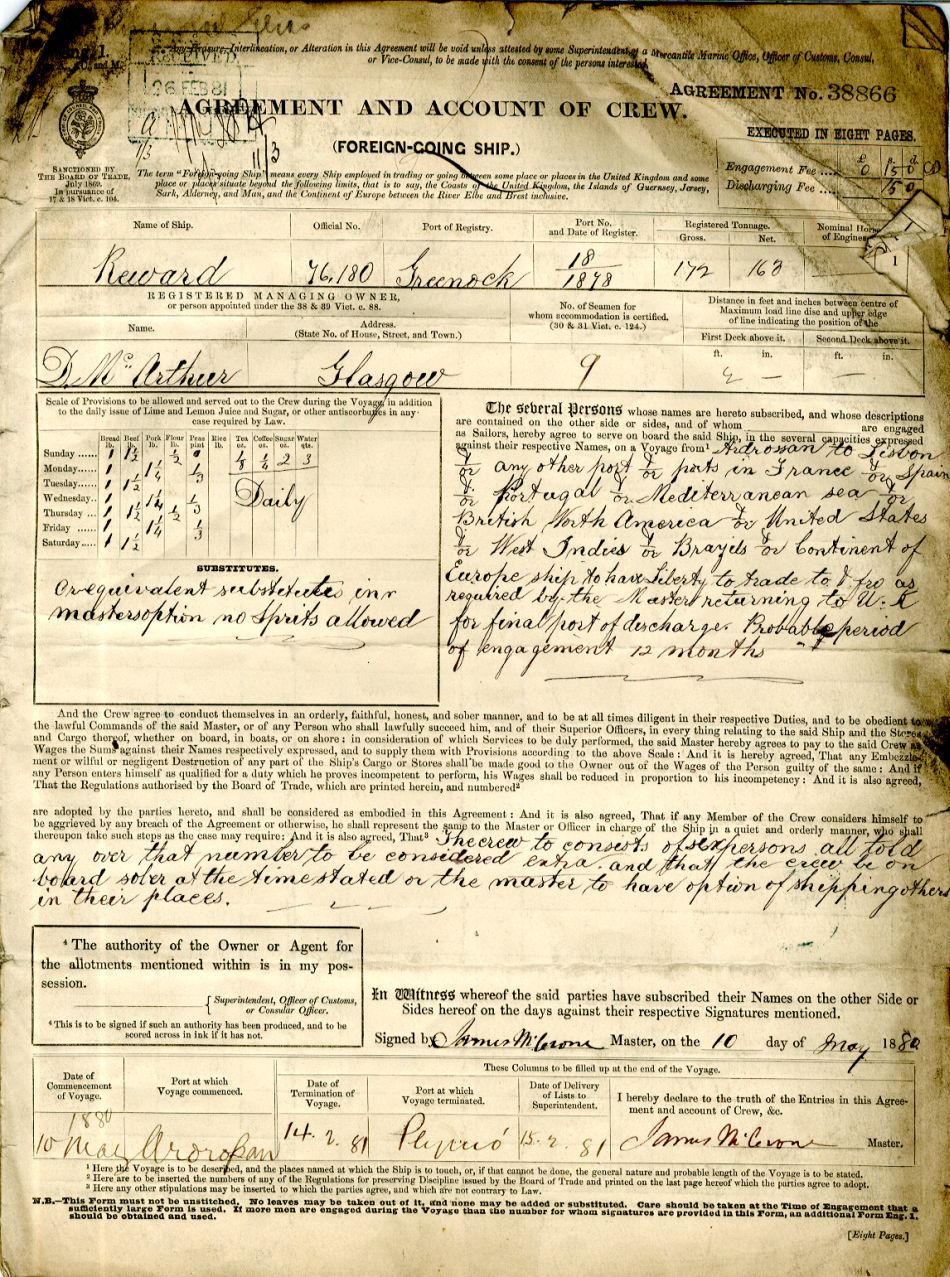 Any Erasure, Interlineation, or Alteration in this Agreement will be void unless attested by some Superintendent of a Mercantile Marine Office, Officer of Customs, Consul,
or Vice-Consul, to be made with the consent of the persons interested.
RECEIVED
26 FEB 81
AGREEMENT No. 38866
AGREEMENT AND ACCOUNT OF CREW.
(FOREIGN-GOING SHIP.)
EXECUTED IN EIGHT PAGES.
£ s. d.
Engagement Fee ..... 0 15 0
Discharging Fee ..... 15 0
SANCTIONED BY
THE BOARD OF TRADE,
July 1869.
In pursuance of
17 & 18 Vict. c. 104.
The term "Foreign-going Ship" means every Ship employed in trading or going between some place or places in the United Kingdom and some
place or places situate beyond the following limits, that is to say, the Coasts of the United Kingdom, the Islands of Guernsey, Jersey,
Sark, Alderney, and Man, and the Continent of Europe between the River Elbe and Brest inclusive.
Name of Ship. Official No. Port of Registry. Port No. and Date of Register. Registered Tonnage. Gross. Net. Nominal Horse of Engines
Reward 76,180 Greenock 18/1878 172 163 —
REGISTERED MANAGING OWNER,
or person appointed under the 38 & 39 Vict. c. 88.
Name. Address. (State No. of House, Street, and Town.)
No. of Seamen for whom accommodation is certified. (30 & 31 Vict. c. 124.)
Distance in feet and inches between centre of
Maximum load line disc and upper edge
of line indicating the position of the
First Deck above it. Second Deck above it.
ft. in. ft. in.
D. McArthur Glasgow 9
Scale of Provisions to be allowed and served out to the Crew during the Voyage, in addition
to the daily issue of Lime and Lemon Juice and Sugar, or other antiscorbutics in any
case required by Law.
Bread lb. Beef lb. Pork lb. Flour lb. Peas pint Rice lb. Tea oz. Coffee oz. Sugar oz. Water qts.
Sunday ...... 1 1½ ½ ⅛ ¼ 2 3
Monday ...... 1 1¼ ⅓
Tuesday ...... 1 1½ Daily
Wednesday... 1 1¼ ⅓
Thursday .... 1 1½ ½
Friday ...... 1 1¼ ⅓
Saturday..... 1 1½
SUBSTITUTES.
Or equivalent substitutes in
masters option no Sprits allowed
The several Persons whose names are hereto subscribed, and whose descriptions
are contained on the other side or sides, and of whom are engaged
as Sailors, hereby agree to serve on board the said Ship, in the several capacities expressed
against their respective Names, on a Voyage from¹ Ardrossan to Lisbon
&/or any other port &/or ports in France &/or Spain
&/or Portugal &/or Mediterranean sea &/or
British North America &/or United States
&/or West Indies &/or Brazils &/or Continent of
Europe ship to have Liberty to trade to & fro as
required by the Master returning to U.K
for final port of discharge. Probable period
of engagement 12 months
And the Crew agree to conduct themselves in an orderly, faithful, honest, and sober manner, and to be at all times diligent in their respective Duties, and to be obedient to
the lawful Commands of the said Master, or of any Person who shall lawfully succeed him, and of their Superior Officers, in every thing relating to the said Ship and the Stores
and Cargo thereof, whether on board, in boats, or on shore: in consideration of which Services to be duly performed, the said Master hereby agrees to pay to the said Crew as
Wages the Sums against their Names respectively expressed, and to supply them with Provisions according to the above Scale: And it is hereby agreed, That any Embezzle-
ment or wilful or negligent Destruction of any part of the Ship's Cargo or Stores shall be made good to the Owner out of the Wages of the Person guilty of the same: And if
any Person enters himself as qualified for a duty which he proves incompetent to perform, his Wages shall be reduced in proportion to his incompetency: And it is also agreed,
That the Regulations authorised by the Board of Trade, which are printed herein, and numbered²
are adopted by the parties hereto, and shall be considered as embodied in this Agreement: And it is also agreed, That if any Member of the Crew considers himself to
be aggrieved by any breach of the Agreement or otherwise, he shall represent the same to the Master or Officer in charge of the Ship in a quiet and orderly manner, who shall
thereupon take such steps as the case may require: And it is also agreed, That³ The crew to consists of six persons all told
any over that number to be considered extra. and that the crew be on
board sober at the time stated or the master to have option of shipping others
in their places.
⁴ The authority of the Owner or Agent for
the allotments mentioned within is in my pos-
session.
Superintendent, Officer of Customs,
or Consular Officer.
⁴ This is to be signed if such an authority has been produced, and to be
scored across in ink if it has not.
In Witness whereof the said parties have subscribed their Names on the other Side or
Sides hereof on the days against their respective Signatures mentioned.
Signed by James Master, on the 10 day of May 1880
These Columns to be filled up at the end of the Voyage.
Date of Commencement of Voyage. Port at which Voyage commenced. Date of Termination of Voyage. Port at which Voyage terminated. Date of Delivery of Lists to Superintendent.
I hereby declare to the truth of the Entries in this Agree-
ment and account of Crew, &c.
1880
10 May 14. 2. 81 15. 2. 81 James Master.
¹ Here the Voyage is to be described, and the places named at which the Ship is to touch, or, if that cannot be done, the general nature and probable length of the Voyage is to be stated.
² Here are to be inserted the numbers of any of the Regulations for preserving Discipline issued by the Board of Trade and printed on the last page hereof which the parties agree to adopt.
³ Here any other stipulations may be inserted to which the parties agree, and which are not contrary to Law.
N.B.—This Form must not be unstitched. No leaves may be taken out of it, and none may be added or substituted. Care should be taken at the Time of Engagement that a
sufficiently large Form is used. If more men are engaged during the Voyage than the number for whom signatures are provided in this Form, an additional Form Eng. 1.
should be obtained and used.
[Eight Pages.]